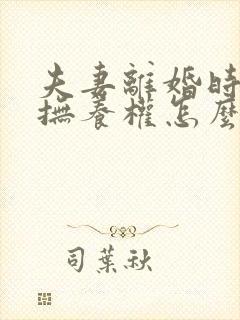 夫妻離婚時
撫養權怎麼
司葉秋